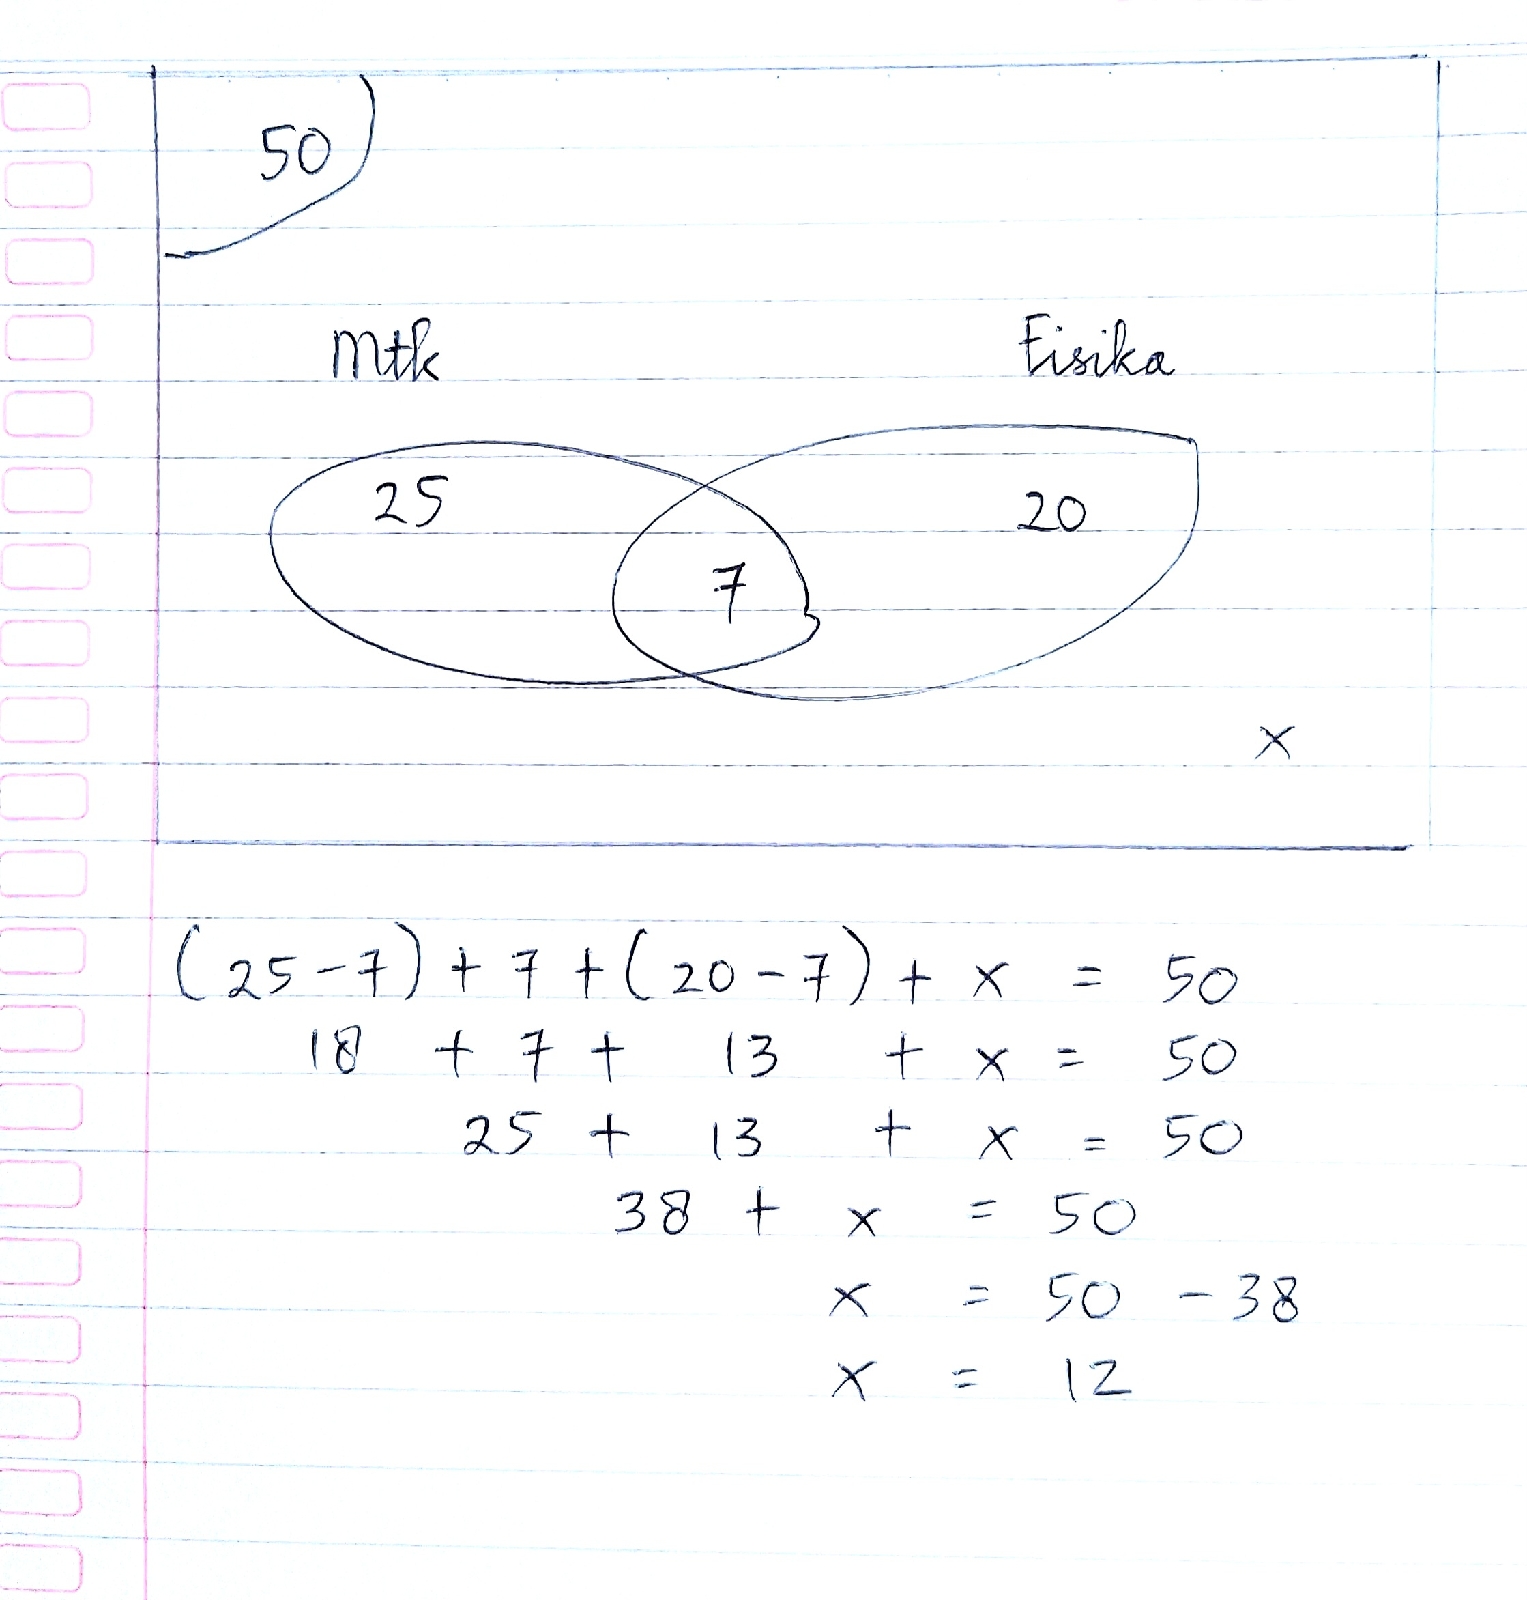 50
Mtk Fisika
25 20
7
x
(25-7) + 7 + (20-7) + x = 50
18 + 7 + 13 + x = 50
25 + 13 + x = 50
38 + x = 50
x = 50 - 38
x = 12